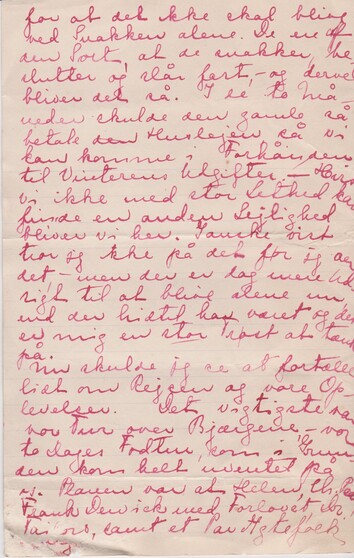 for at det ikke skal blive
ved Snakken alene. De er af
den Sort, at de snakker, be-
slutter og slår fast, - og derved
bliver det så. I de to Må-
neder skulde den gamle så
betale den Husleje så vi
kan komme i Forhånden
til Vinterens Udgifter. - Hvis
vi ikke med stor Lethed kan
finde en anden Lejlighed
bliver vi her. Tanke
tror jeg ikke på det før jeg ser
det, - men der er dog mere Ud-
sigt til at blive alene nu
end der hidtil har været og det
er mig en stor Trøst at tænke
på.
Nu skulde jeg se at fortælle
lidt om Rejsen og vore Op-
levelser. Det vigtigste var
vor Tur over Bjærgene - vor
to Dages Fodtur, som i Grun-
den kom helt uventet på
os. Planen var at Helen,
Frank med Forlovet,
samt et Par Ægtefolk